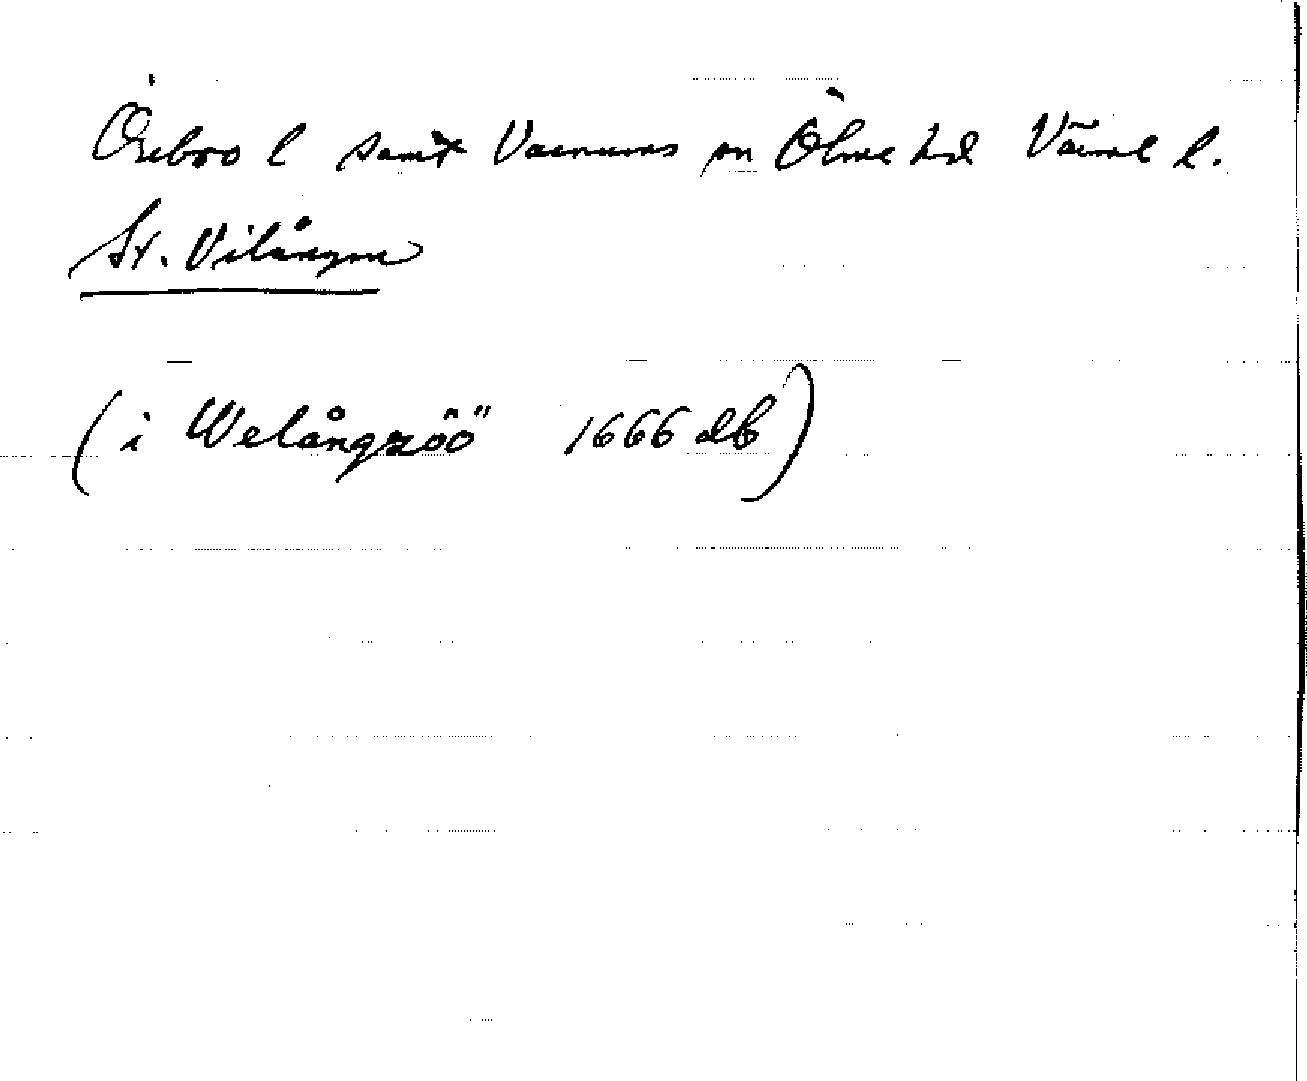 Örebro l samt Varnums sn Ölme hd Värml l.
St. Vilången
(i Welångzöö 1666 db)